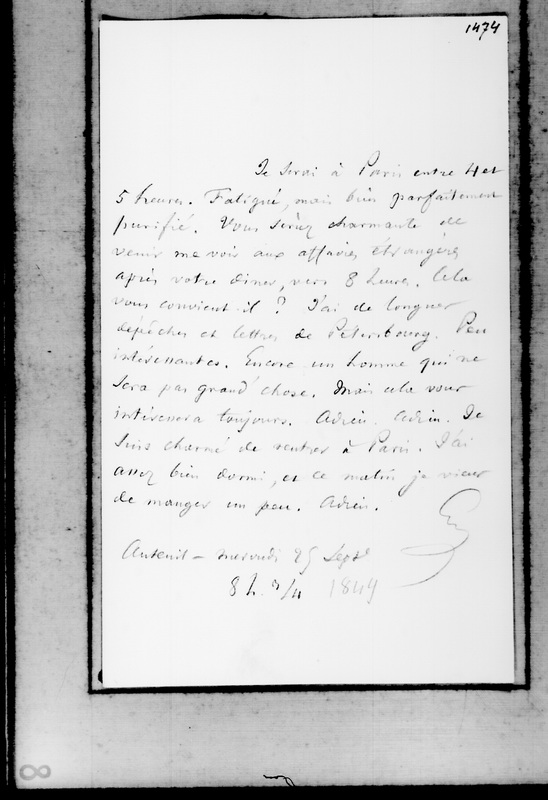 1474
Je serai à Paris entre 4 et
5 heures. Fatigué, mais bien parfaitement
purifié. Vous seriez charmante de
venir me voir aux affaires étrangères
après votre diner, vers 8 heures. Cela
vous convient-il ? J'ai de longues
dépêches et lettres de Pétersbourg. Peu
intéressantes. Encore un homme qui ne
sera pas grand'chose. Mais cela vous
intéressera toujours. Adieu. Adieu. Je
suis charmé de rentrer à Paris. J'ai
assez bien dormi, et ce matin je viens
de manger un peu. Adieu.
Auteuil - mercredi 25 Sept
8 h. 3/4 1849